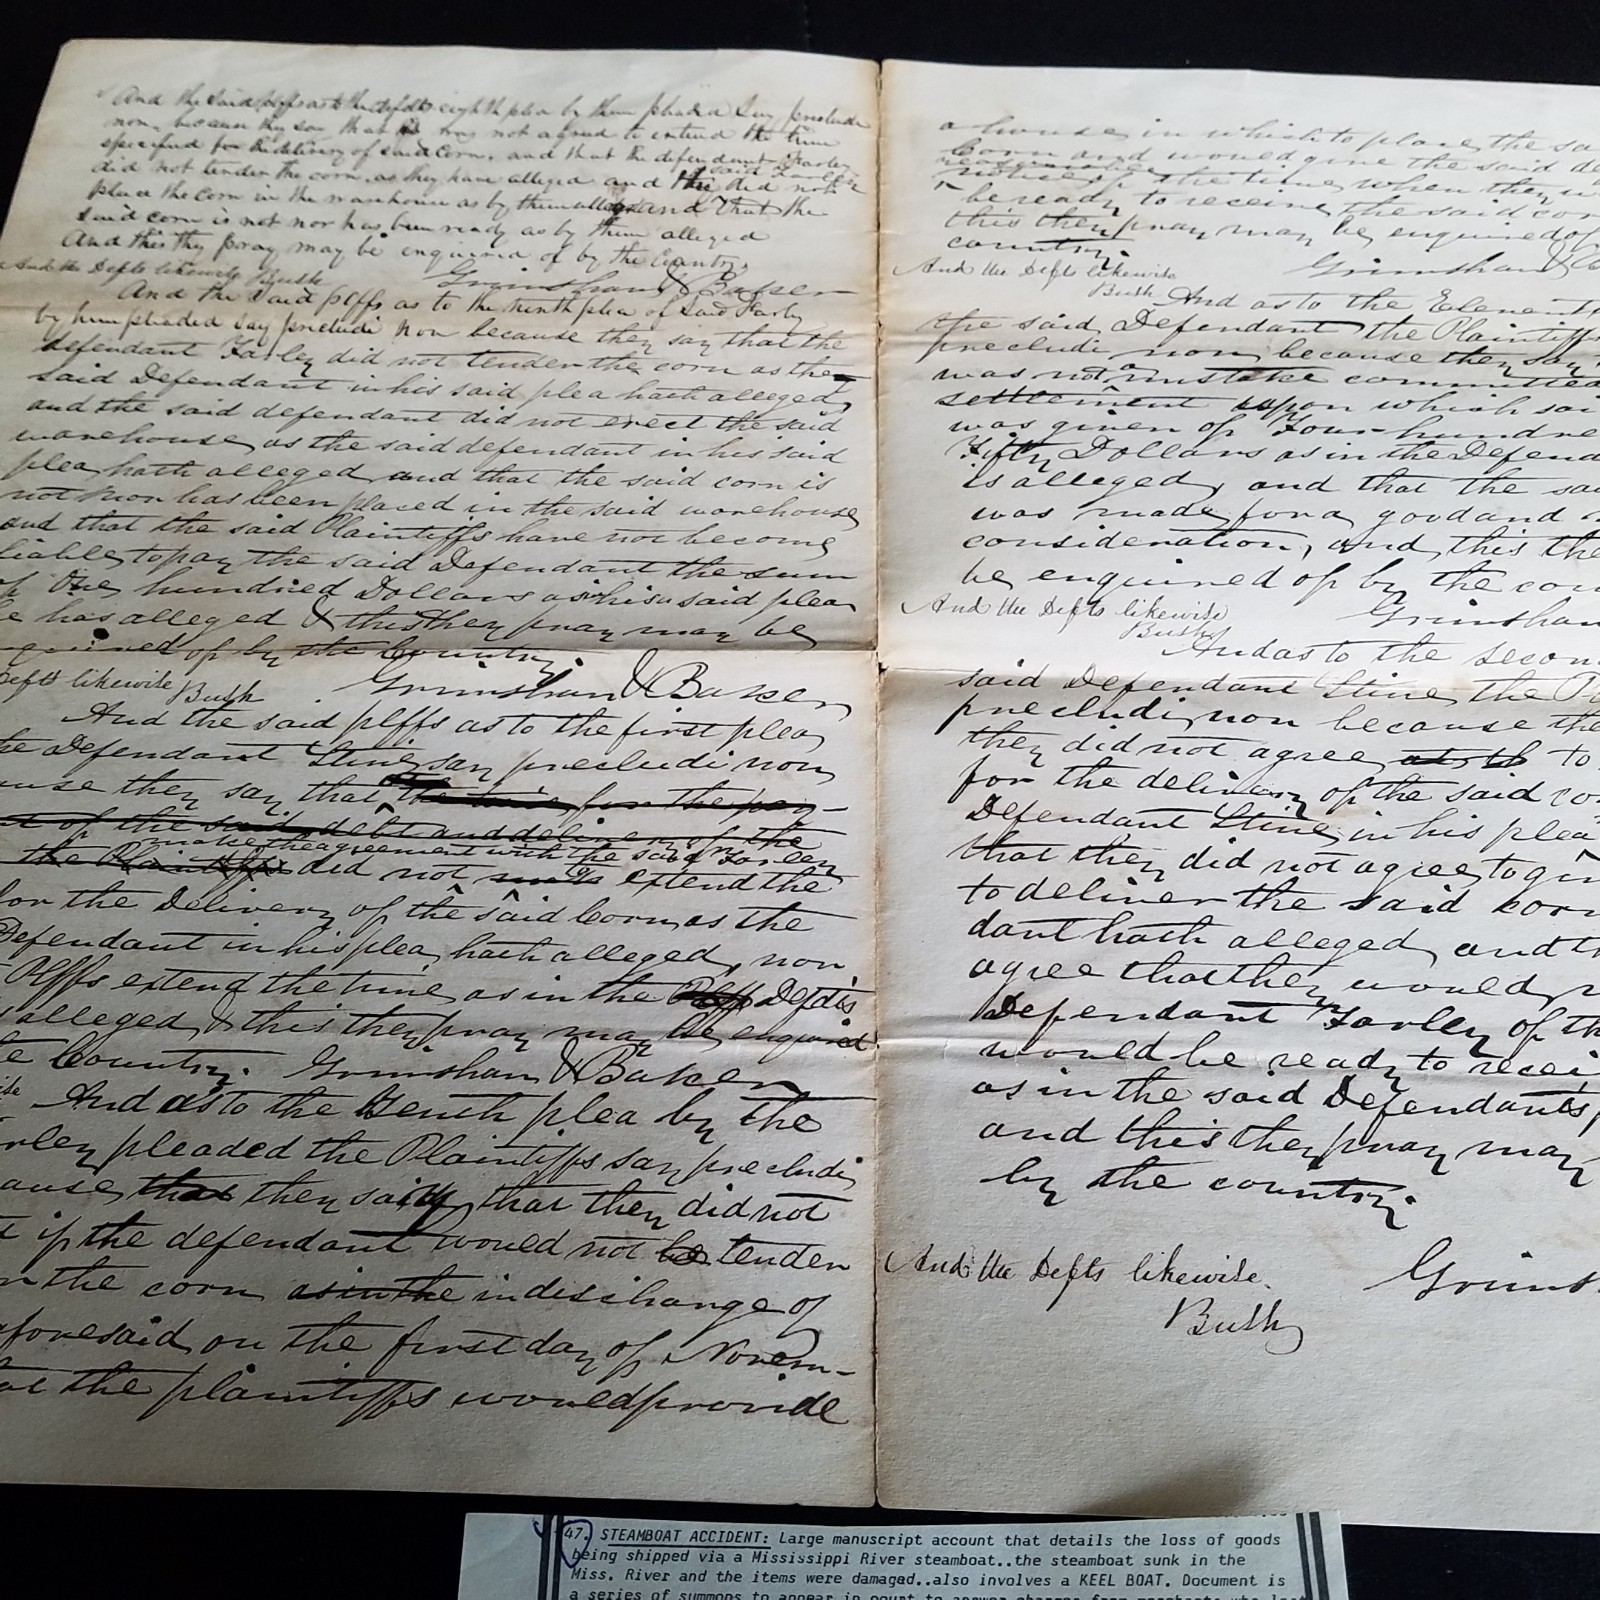 And the said plffs as to the defdts eighth plea by them pleaded say precludi
non, because they say that it was not agreed to extend the time
specified for the delivery of said corn, and that the defendant Farley
did not tender the corn as they have alleged and the said Farley did not
place the corn in the warehouse as by them alleged and that the
said corn is not nor has been ready as by them alleged
And this they pray may be enquired of by the Country,
And the Defts likewise Bush Grimshaw & Baker
And the said plffs as to the ninth plea of said Farly
by him pleaded say precludi non because they say that the
defendant Farley did not tender the corn as the
said Defendant in his said plea hath alleged,
and the said defendant did not erect the said
warehouse as the said defendant in his said
plea hath alleged and that the said corn is
not nor has been placed in the said warehouse
and that the said Plaintiffs have not become
liable to pay the said Defendant the sum
of One hundred Dollars as in his said plea
he has alleged & this they pray may be
of by the Country.
Defts likewise Bush Grimshaw & Baker
And the said plffs as to the first plea
Defendant Stine say precludi non
they say that the time for the pay-
of the said debt and delivery of the
make the agreement with the said Farley
the Plaintiffs did not extend the
for the Delivery of the said Corn as the
Defendant in his plea hath alleged, nor
Plffs extend the time as in the Plff Defdts
alleged, & this they pray may be enquired
Country. Grimshaw & Baker
And as to the Tenth plea by the
pleaded the Plaintiffs say precludi
that they say that they did not
if the defendant would not be tender
the corn as in the in discharge of
aforesaid on the first day of Novem-
the plaintiffs would provide
a house in which to place the
Corn and would give the said
reasonable
notice of the time when they
be ready to receive the said
this they pray may be enquired of
country.
And the Defts likewise Grimshaw &
Bush And as to the
the said Defendant the Plaintiffs
precludi non because they say
was not a mistake committed
settlement upon which
was given of Four hundred
Fifty Dollars as in the
is alleged, and that the
was made for a good and
consideration, and this
be enquired of by the
And the Defts likewise
Bush
And as to the
said Defendant Stine the
precludi non because
they did not agree to
for the delivery of the said
Defendant Stine in his plea
that they did not agree to
to deliver the said corn
dant hath alleged, and
agree that they would
Defendant Farley of
would be ready to
as in the said Defendants
and this they pray may
by the country.
And the Defts likewise.
Bush
47. STEAMBOAT ACCIDENT: Large manuscript account that details the loss of goods
being shipped via a Mississippi River steamboat..the steamboat sunk in the
Miss. River and the items were damaged..also involves a KEEL BOAT. Document is
a series of summons to appear in court to answer charges from merchants who